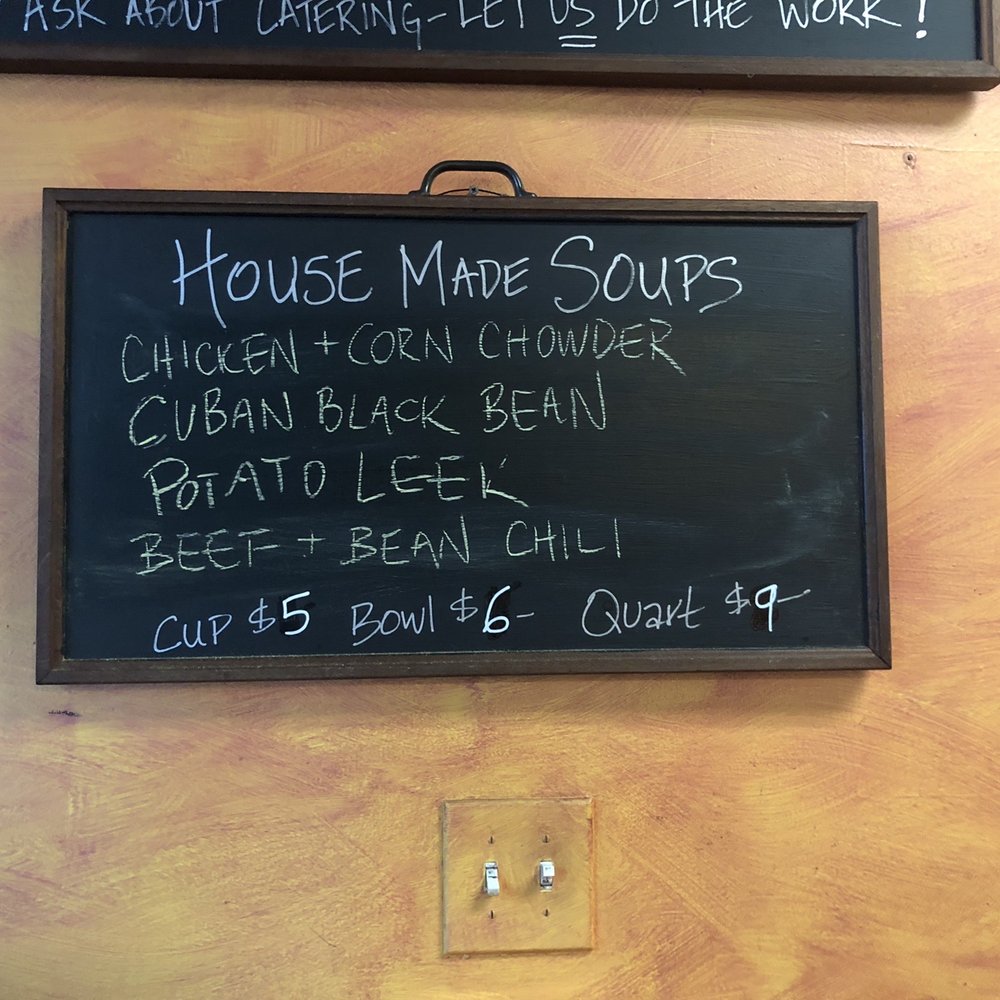 ASK ABOUT CATERING-LET US DO THE WORK!
HOUSE MADE SOUPS
CHICKEN + CORN CHOWDER
CUBAN BLACK BEAN
POTATO LEEK
BEEF + BEAN CHILI
CUP $5 BOWl $6- QUart $9-